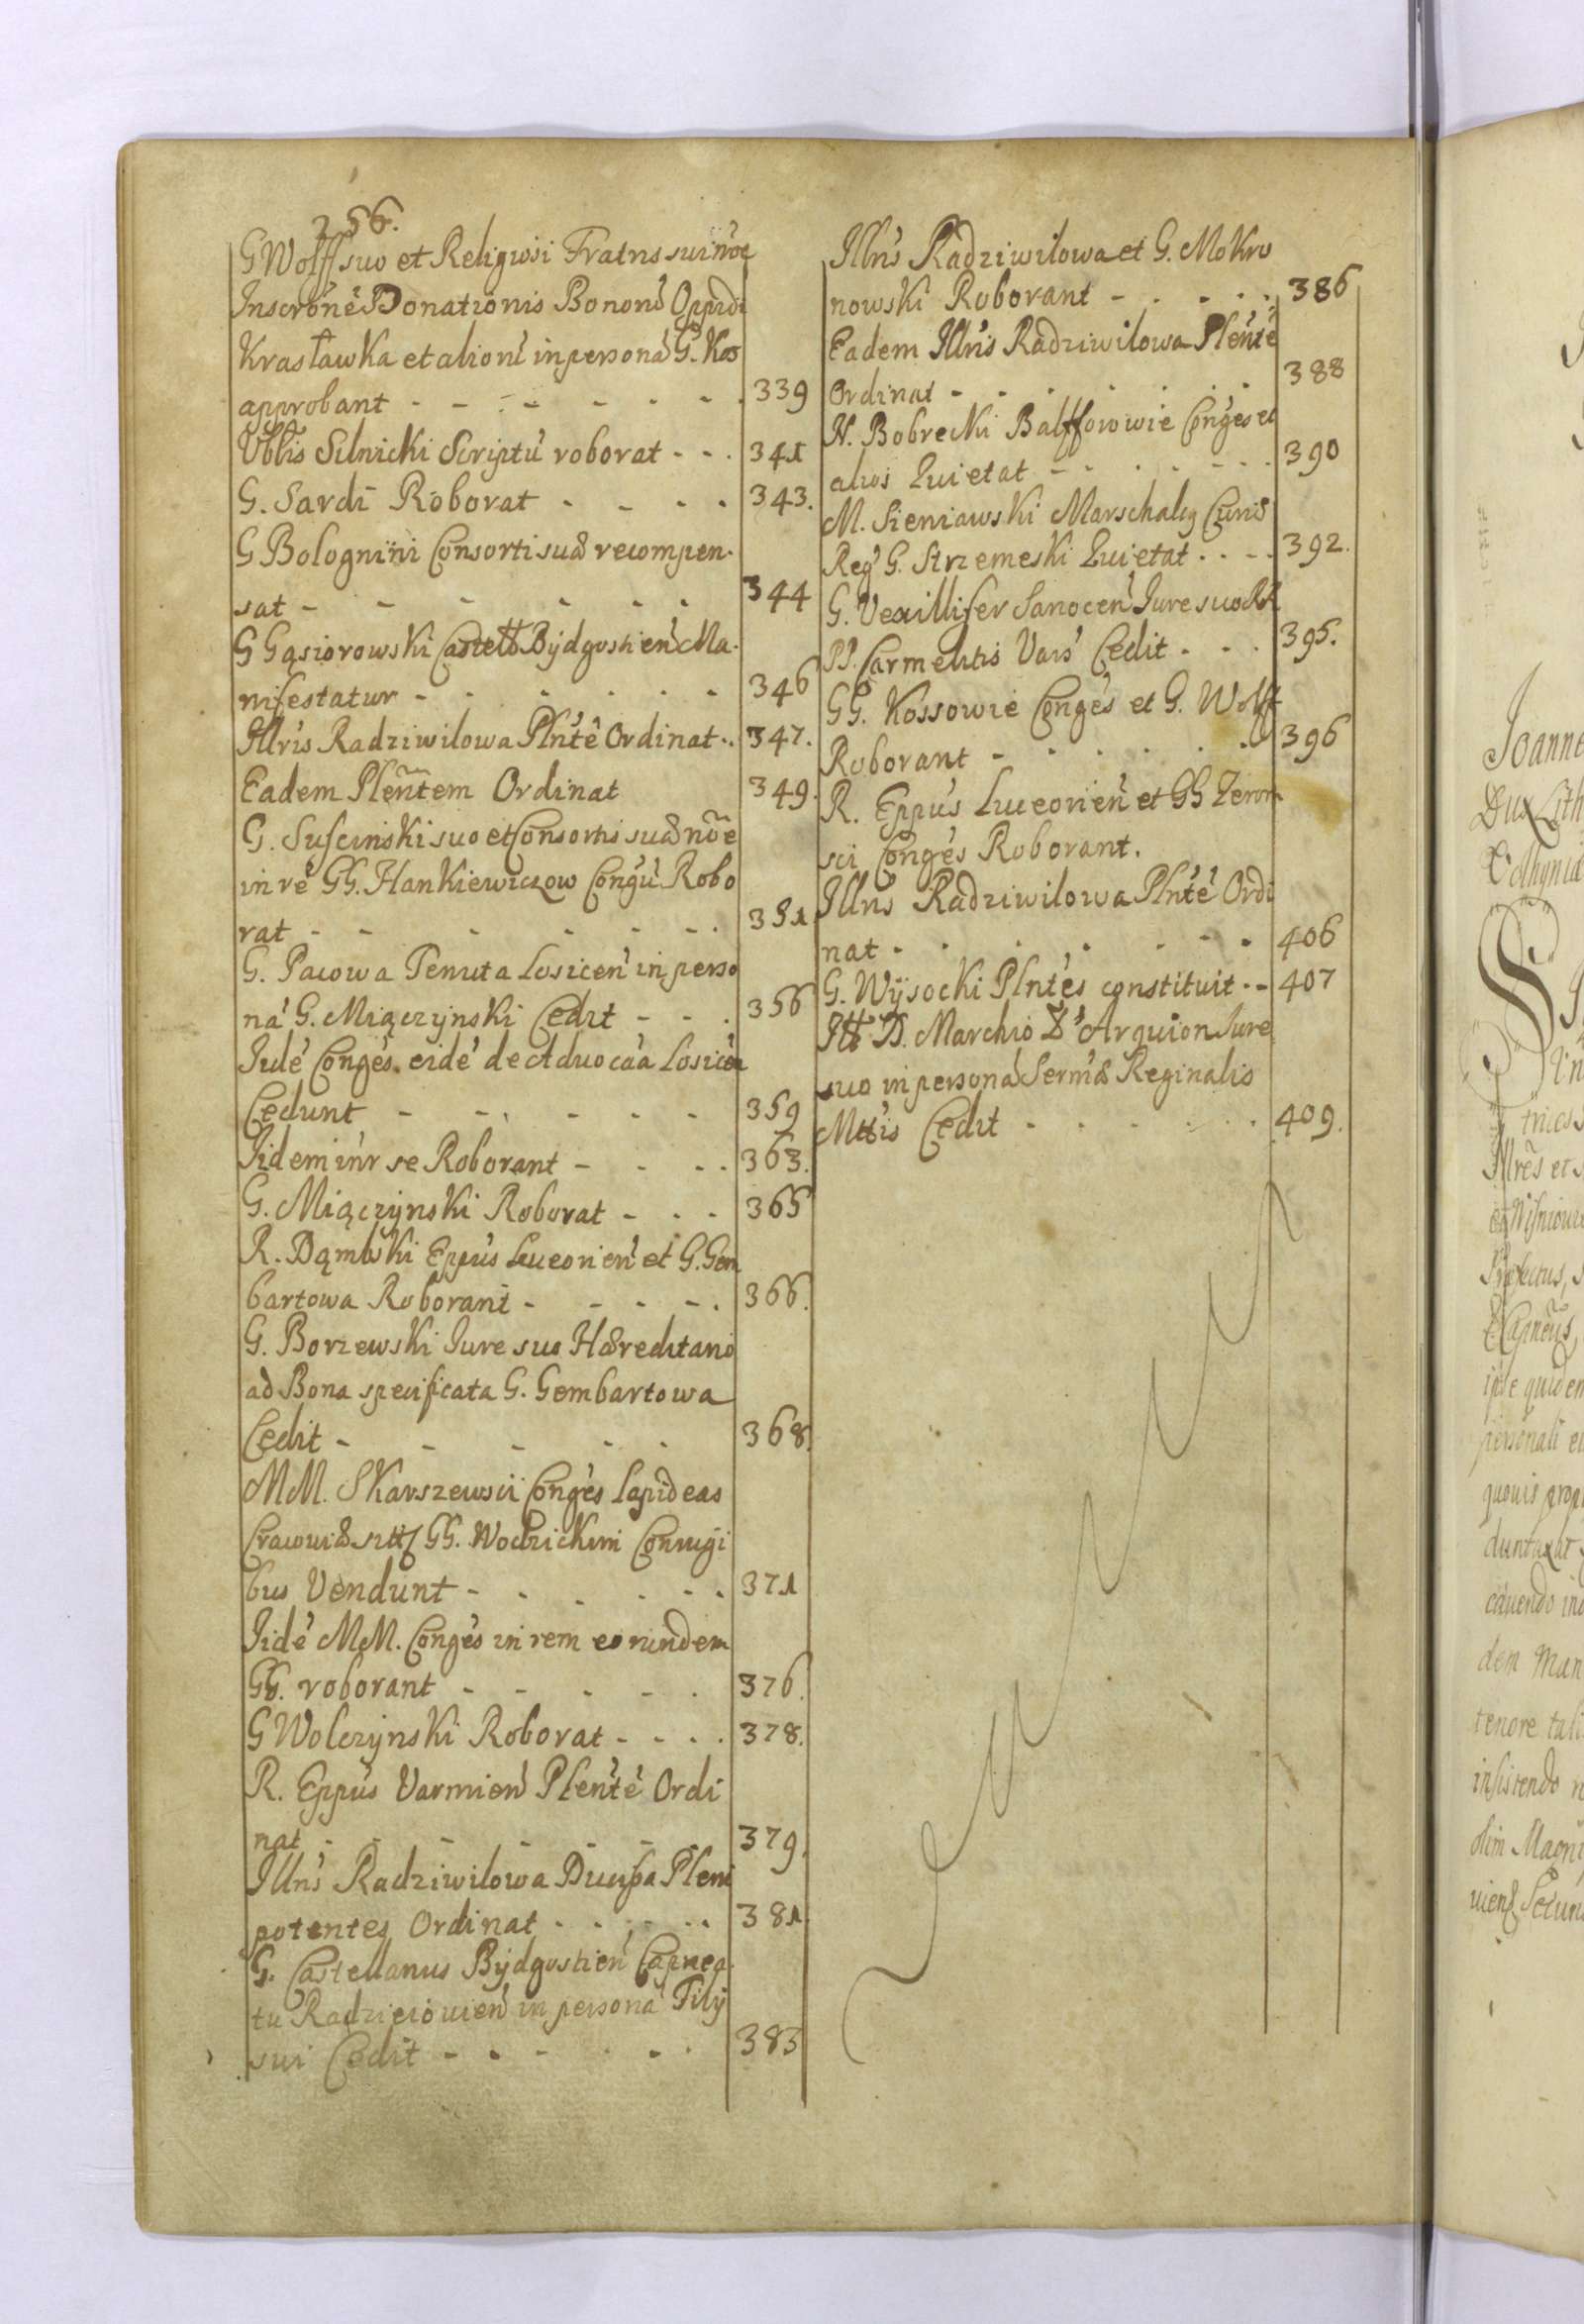 256.
G Wolff suo et Religiosi Fratris sui noe
Inscrone Donationis Bonoru Oppidi
Krasławka et alioru in persona G. Kos
approbant - - - - - - - 339
Vblis Silnicki Scriptu roborat - - . 341
G. Sardi Roborat - - - . 343.
G Bolognini Consorti suæ recompen-
sat - - - - - - 344
G Gąsiorowski Castell Bÿdgostien Ma-
nifestatur - - - - - - 346
Illris Radziwilowa Plnte Ordinat . . 347.
Eadem Plentem Ordinat 349.
G. Sufcinski suo et Consortis suæ noe
in re GG. Hankiewiczow Congu Robo
rat - - - - - . 351
G. Pacowa Tenuta Losicen in perso
na G. Miączÿnski Cedit - - . 356
Iide Conges eide de Aduocaa Losicen
Cedunt - - - - - 359
Iidem inr se Roborant - - . . 363.
G. Miączÿnski Roborat - . - 365
R. Dąmbski Eppus Luceorien et G. Gem
bartowa Roborant - - - - . 366.
G. Borzewski Iure suo Hæreditario
ad Bona specificata G. Gembartowa
Cedit - - - - . 368.
MM. Skarszewscÿ Conges Lapideas
Cracouiæ GG. Wodzickim Coniugi
bus Vendunt - . . - - . 371
Iide MM. Conges in rem eorundem
GG. roborant - - - - . 376.
G Wolczÿnski Roborat - - . . 378.
R. Eppus Varmien Plente Ordi
nat - - - - - - 379.
Illris Radziwilowa Ducissa Pleni
potentes Ordinat . . - . . 381
G. Castellanus Bÿdgostien Capnea
tu Radzieiouien in persona Filÿ
sui Cedit - - - . - . 383
Illris Radziwilowa et G. Mokro
nowski Roborant - . . . . 386
Eadem Illris Radziwilowa Plente
Ordinat - - . . . . . 388
N. Bobrecki Balfforowie Conges et
alios Quietat - - . . - - . 390
M. Sieniawski Marschalcg Curiæ
Reg G. Strzemeski Quietat . . - - 392.
G. Vexillifer Sanocen Iure suo RR
PP. Carmelitis Vars Cedit - . . 395.
GG. Kossowie Conges et G. Wolff
Roborant - . . . . . 396
R. Eppus Luceorien et GG Zerom
sci Conges Roborant.
Illris Radziwilowa Plnte Ordi
nat - . . . . . . 406
G. Wÿsocki Plntes constituit . - 407
Ill D. Marchio D'Arquion Iure
suo in persona Sermæ Reginalis
Mttis Cedit . . . . . . 409.
Joanne
Dux Lith
tries
Illres et
Wisniow
Præfectus,
Capneus
ipse quidem
personali
quouis
duntaxat
cauendo
dem Man
tenore tali
insistendo
olim Magni